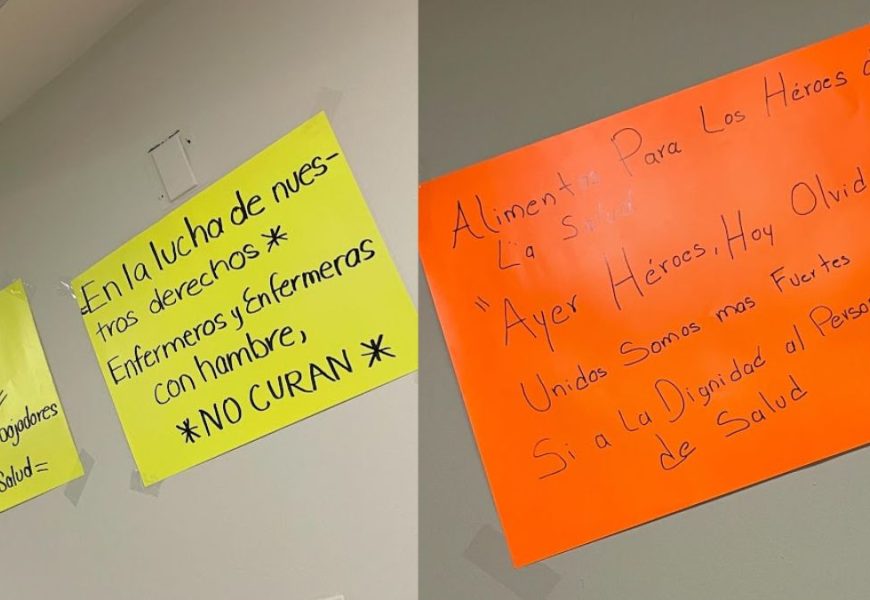 bajadores
Salud=
En la lucha de nues-
tros derechos *
Enfermeros y Enfermeras
con hambre,
*NO CURAN *
Alimentos Para Los Héroes
La Salud
"Ayer Héroes, Hoy Olvid
Unidos Somos mas Fuertes
Si a La Dignidad al Person
de Salud